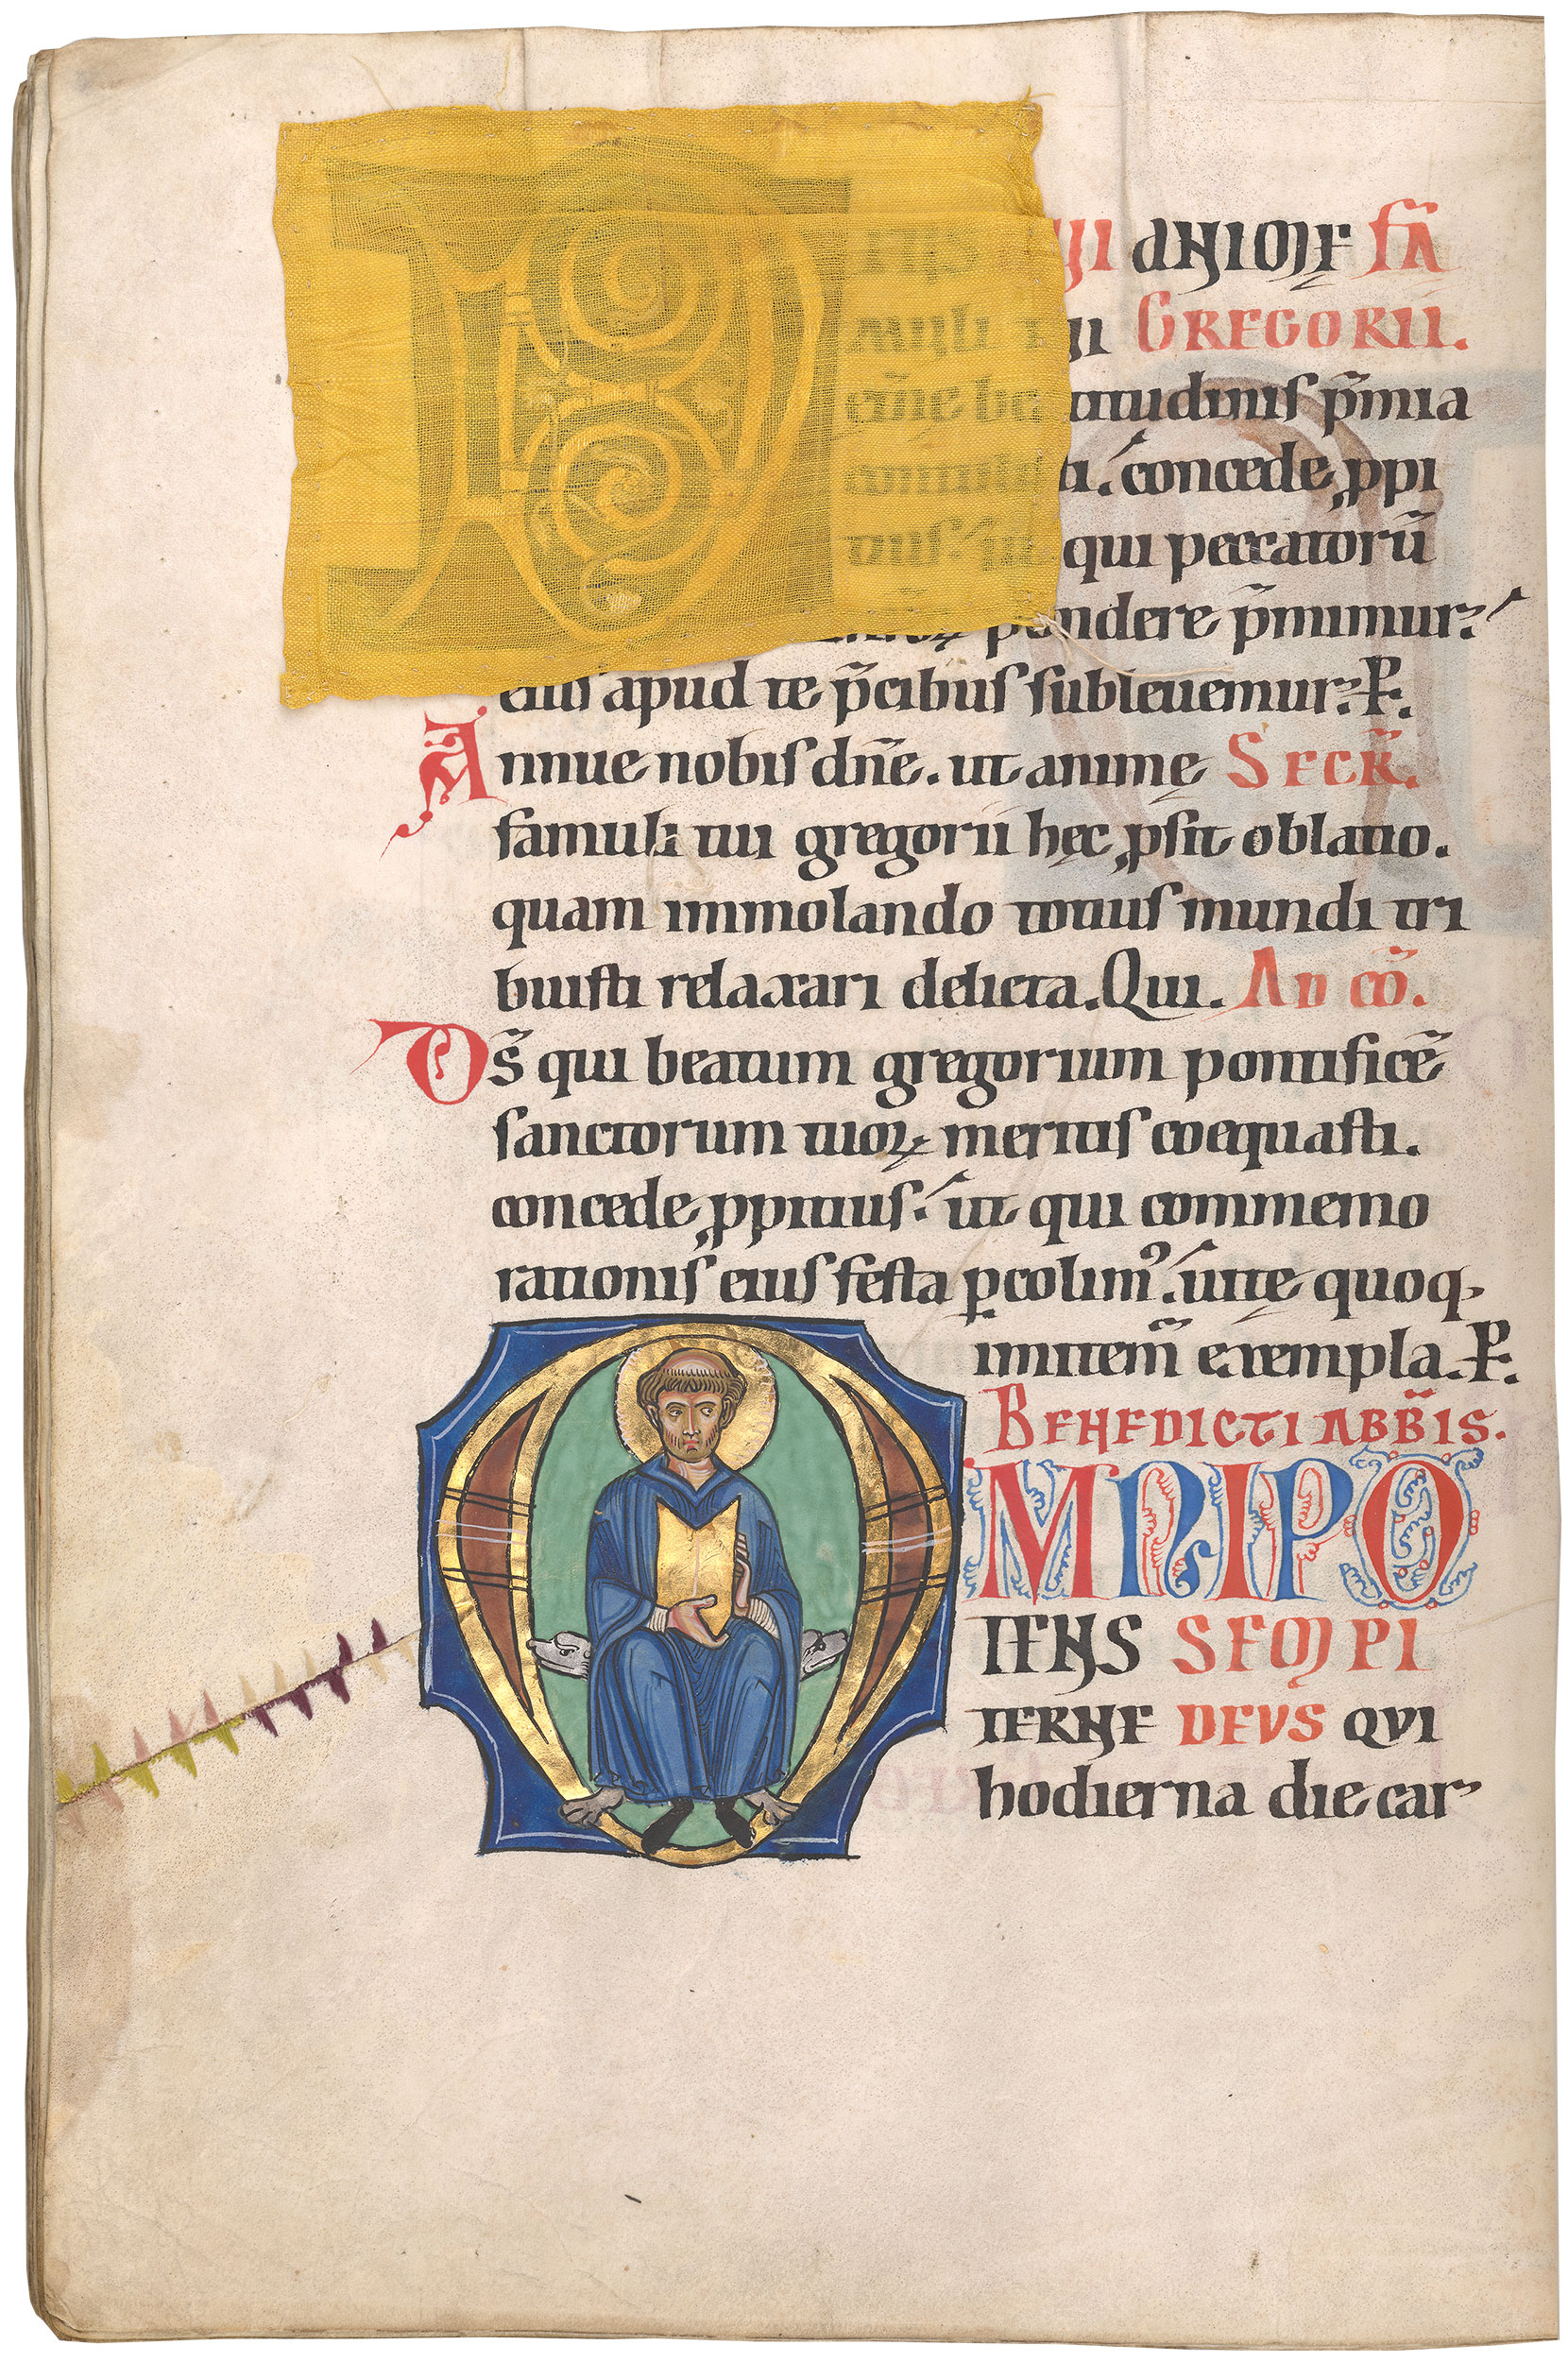 ANIME FA
GREGORII.
titudinis p̄mia
ti. concede ꝓpi
qui peccatorū
pondere p̄mimur.
eius apud te p̄cibus subleuemur. P.
Annue nobis dn̄e. ut animę SECR̄.
famuli tui gregorii hęc ꝓsit oblatio.
quam immolando totius mundi tri
buisti relaxari delicta. Qui. AD CO͞.
Ds̄ qui beatum gregorium pontificē
sanctorum tuoꝝ meritis coequasti.
concede ꝓpitius. ut qui commemo
rationis eius festa ꝑcolimꝰ. uitę quoq;
imitem̄ exempla. P.
BENEDICTI ABB̄IS.
OMNIPO
TENS SEMPI
TERNE DEVS QVI
hodierna die car